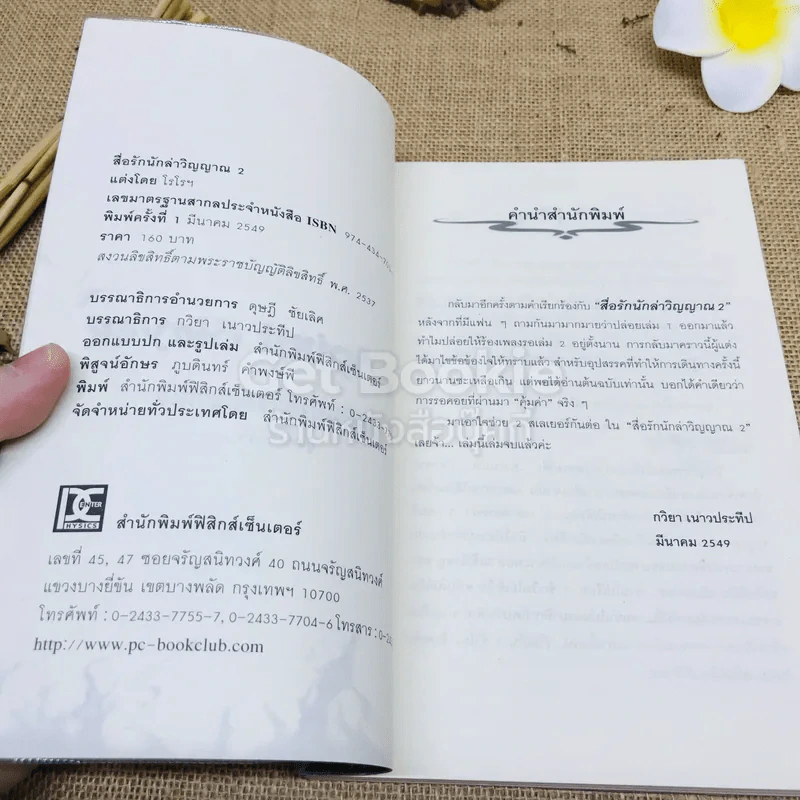 สื่อรักนักล่าวิญญาณ 2
แต่งโดย โรโรฯ
เลขมาตรฐานสากลประจำหนังสือ ISBN 974-434-
พิมพ์ครั้งที่ 1 มีนาคม 2549
ราคา 160 บาท
สงวนลิขสิทธิ์ตามพระราชบัญญัติลิขสิทธิ์ พ.ศ. 2537
บรรณาธิการอำนวยการ ดุษฎี ชัยเลิศ
บรรณาธิการ กวิยา เนาวประทีป
ออกแบบปก และรูปเล่ม สำนักพิมพ์ฟิสิกส์เซ็นเตอร์
พิสูจน์อักษร ภูบดินทร์ คำพงษ์พี
พิมพ์ สำนักพิมพ์ฟิสิกส์เซ็นเตอร์ โทรศัพท์ : 0-2433-
จัดจำหน่ายทั่วประเทศโดย สำนักพิมพ์ฟิสิกส์เซ็นเตอร์
PC ENTER
HYSICS
สำนักพิมพ์ฟิสิกส์เซ็นเตอร์
เลขที่ 45, 47 ซอยจรัญสนิทวงศ์ 40 ถนนจรัญสนิทวงศ์
แขวงบางยี่ขัน เขตบางพลัด กรุงเทพฯ 10700
โทรศัพท์ : 0-2433-7755-7, 0-2433-7704-6 โทรสาร : 0-2
http://www.pc-bookclub.com
คำนำสำนักพิมพ์
กลับมาอีกครั้งตามคำเรียกร้องกับ "สื่อรักนักล่าวิญญาณ 2"
หลังจากที่มีแฟน ๆ ถามกันมามากมายว่าปล่อยเล่ม 1 ออกมาแล้ว
ทำไมปล่อยให้ร้องเพลงรอเล่ม 2 อยู่ตั้งนาน การกลับมาคราวนี้ผู้แต่ง
ได้มาไขข้อข้องใจให้ทราบแล้ว สำหรับอุปสรรคที่ทำให้การเดินทางครั้งนี้
ยาวนานซะเหลือเกิน แต่พอได้อ่านต้นฉบับเท่านั้น บอกได้คำเดียวว่า
การรอคอยที่ผ่านมา "คุ้มค่า" จริง ๆ
มาเอาใจช่วย 2 สเลเยอร์กันต่อ ใน "สื่อรักนักล่าวิญญาณ 2"
เลยจ้า... เล่มนี้เล่มจบแล้วค่ะ
กวิยา เนาวประทีป
มีนาคม 2549
Get Bookie
ร้านหนังสือบุ๊คกี้